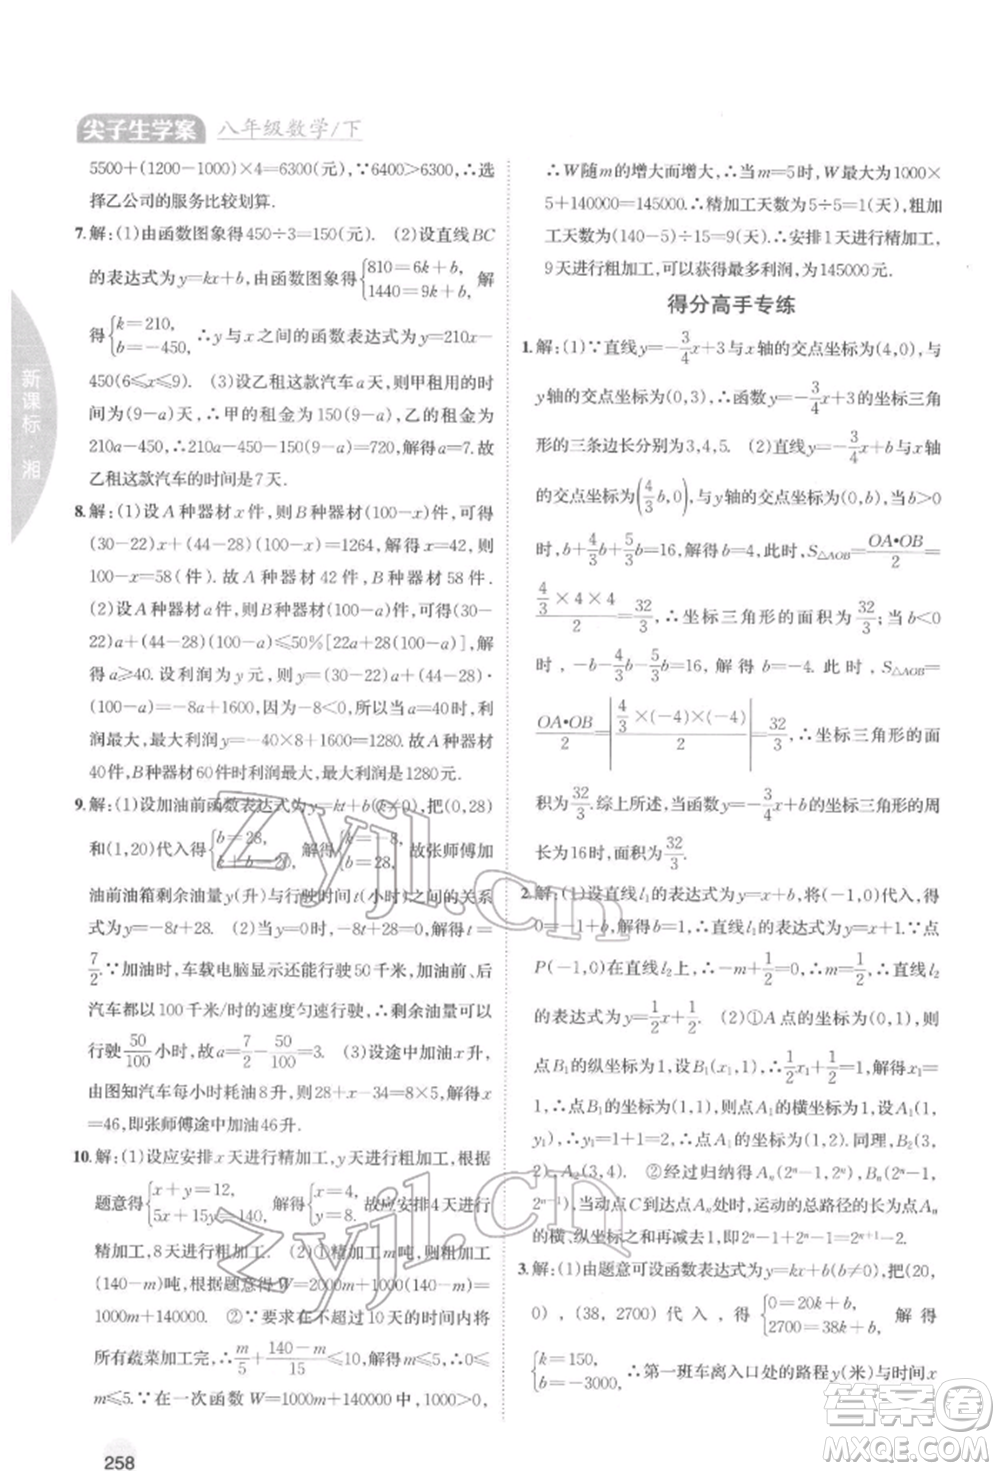 尖子生学案 八年级数学/下
新课标·湘
5500+(1200-1000)×4=6300(元),∵6400>6300,∴选
择乙公司的服务比较划算.
7.解:(1)由函数图象得450÷3=150(元). (2)设直线BC
的表达式为y=kx+b,由函数图象得{810=6k+b, 1440=9k+b, 解
得{k=210, b=-450, ∴y与x之间的函数表达式为y=210x-
450(6⩽x⩽9). (3)设乙租这款汽车a天,则甲租这款
汽车(9-a)天,∴甲的租金为150(9-a)元,乙的租金为
210a-450,∴210a-450-150(9-a)=720,解得a=7.故
乙租这款汽车的时间是7天.
8.解:(1)设A种器材x件,则B种器材(100-x)件,可得
(30-22)x+(44-28)(100-x)=1264,解得x=42,则
100-x=58(件).故A种器材42件,B种器材58件.
(2)设A种器材a件,则B种器材(100-a)件,可得(30-
22)a+(44-28)(100-a)⩽50%[22a+28(100-a)],解
得a⩾40.设利润为y元,则y=(30-22)a+(44-28)·
(100-a)=-8a+1600,因为-8<0,所以当a=40时,利
润最大,最大利润为y=-40×8+1600=1280.故A种器材
40件,B种器材60件时利润最大,最大利润是1280元.
9.解:(1)设加油前函数表达式为y=kt+b(k≠0),把(0,28)
和(1,20)代入得{b=28, k+b=20, 解得{k=-8, b=28, 故张师傅加
油前油箱剩余油量y(升)与行驶时间t(小时)之间的关系
式为y=-8t+28. (2)当y=0时,-8t+28=0,解得t=
7/2.∵加油时,车载电脑显示还能行驶50千米,加油前、后
汽车都以100千米/时的速度匀速行驶,∴剩余油量可以
行驶50/100小时,故a=7/2-50/100=3. (3)设途中加油x升,
由图知汽车每小时耗油8升,可得28+x-34=8×5,解得x
=46,即张师傅途中加油46升.
10.解:(1)设应安排x天进行精加工,y天进行粗加工,根据
题意得{x+y=12, 5x+15y=140, 解得{x=4, y=8, 故应安排4天进行
精加工,8天进行粗加工. (2)①精加工m吨,则粗加工
(140-m)吨,根据题意得W=2000m+1000(140-m)=
1000m+140000. ②∵要求在不超过10天的时间内将
所有蔬菜加工完,∴m/5+(140-m)/15⩽10,解得m⩽5,∴0<
m⩽5.∵在一次函数W=1000m+140000中,k=1000>0,
∴W随m的增大而增大,∴当m=5时,W最大为1000×
5+140000=145000.∴精加工天数为5÷5=1(天),粗加
工天数为(140-5)÷15=9(天),∴安排1天进行精加工,
9天进行粗加工,可以获得最多利润,为145000元.
得分高手专练
1.解:(1)∵直线y=-3/4x+3与x轴的交点坐标为(4,0),与
y轴交点坐标为(0,3),∴函数y=-3/4x+3的坐标三角
形的三条边长分别为3,4,5. (2)直线y=-3/4x+b与x轴
的交点坐标为(4/3b,0),与y轴的交点坐标为(0,b),当b>0
时,b+4/3b+5/3b=16,解得b=4,此时,S△AOB=OA·OB/2=
(4/3×4×4)/2=32/3,∴坐标三角形的面积为32/3;当b<0
时,-b-4/3b-5/3b=16,解得b=-4.此时,S△AOB=
OA·OB/2=|4/3×(-4)×(-4)/2|=32/3,∴坐标三角形的面
积为32/3.综上所述,当函数y=-3/4x+b的坐标三角形的周
长为16时,面积为32/3.
2.解:(1)设直线l1的表达式为y=x+b,将(-1,0)代入,得
0=-1+b,解得b=1,∴直线l1的表达式为y=x+1.∵点
P(-1,0)在直线l2上,∴-m+1/2=0,∴m=1/2,∴直线l2
的表达式为y=1/2x+1/2. (2)①A点的坐标为(0,1),则
点B1的纵坐标为1,设B1(x1,1),∴1/2x1+1/2=1,解得x1
=1,∴点B1的坐标为(1,1),则点A1的横坐标为1,设A1(1,
y1),∴y1=1+1=2,∴点A1的坐标为(1,2).同理,B2(3,
2),A2(3,4). ②经过归纳得An(2ⁿ-1,2ⁿ),Bn(2ⁿ-1,
2ⁿ⁻¹),当动点C到达点An处时,运动的总路径的长为点An
的横、纵坐标之和再减去1,即2ⁿ-1+2ⁿ-1=2ⁿ⁺¹-2.
3.解:(1)由题意可设函数表达式为y=kx+b(k≠0),把(20,
0),(38,2700)代入,得{0=20k+b, 2700=38k+b, 解得
{k=150, b=-3000, ∴第一班车离入口处的路程y(米)与时间
258
zyjl.cn
zyjl.cn
答案圈
MXQE.COM